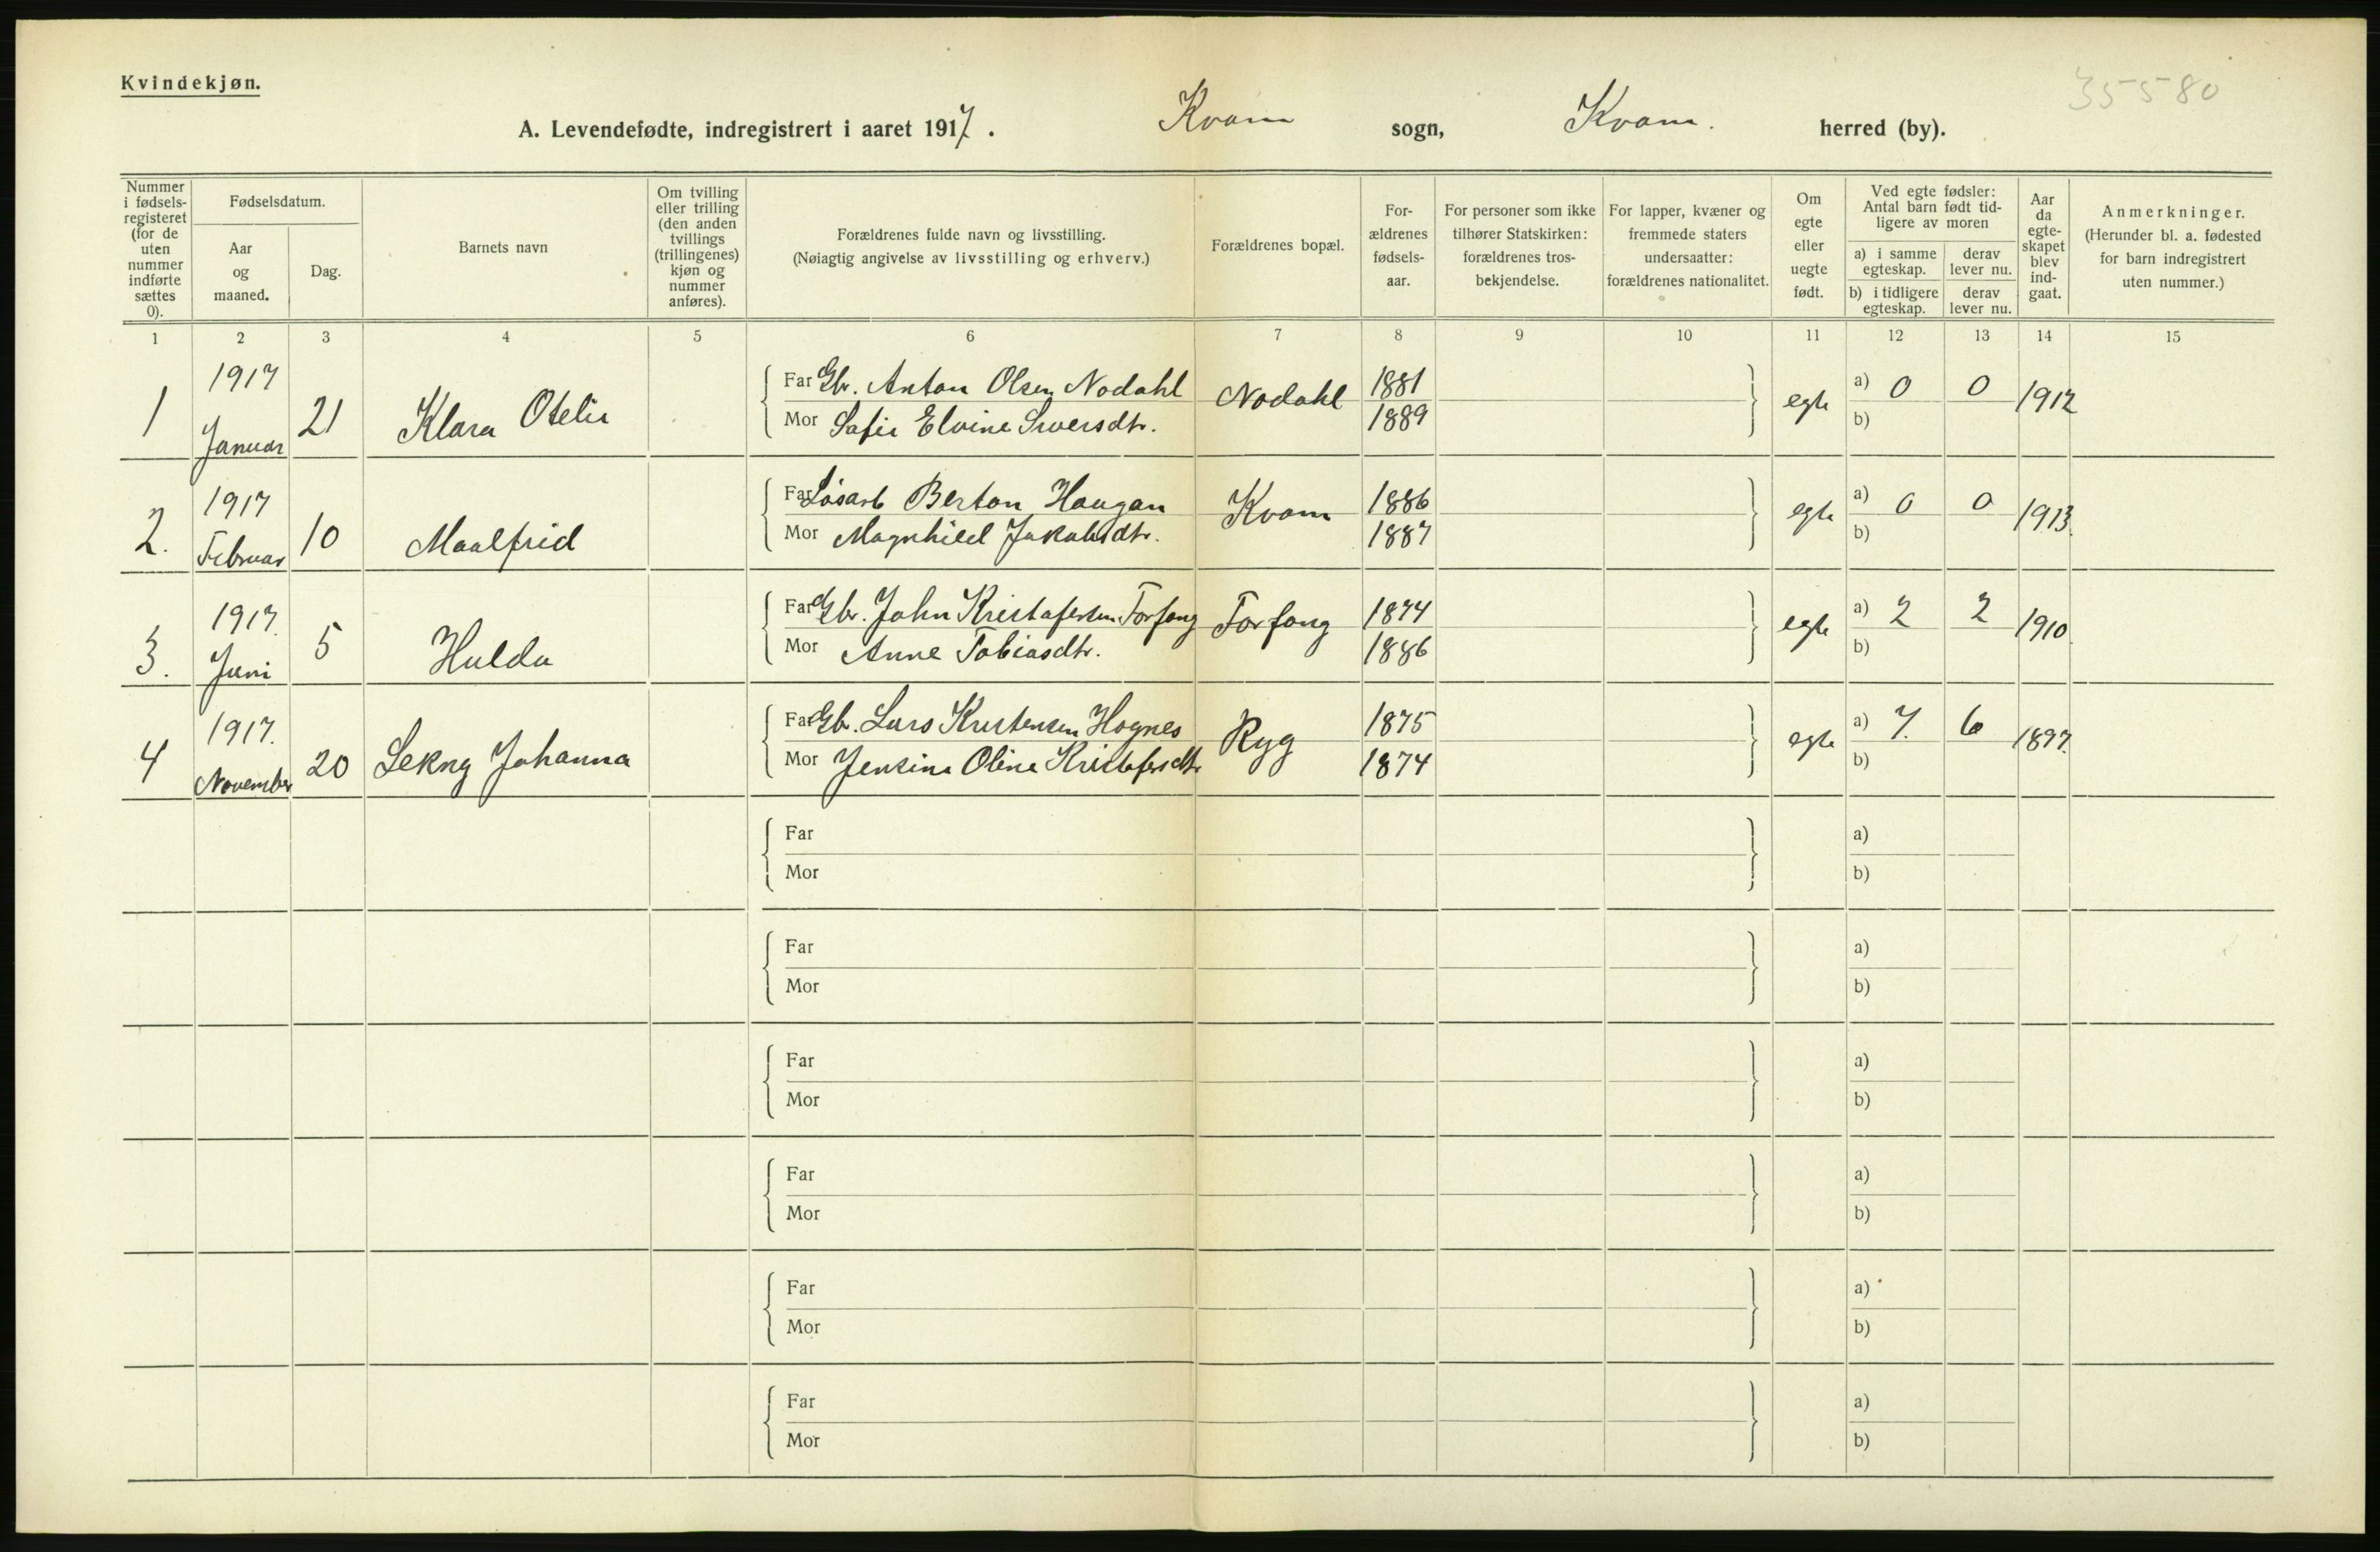 Kvindekjøn.
35580
A. Levendefødte, indregistrert i aaret 1917. Kvam sogn, Kvam. herred (by).
Nummer i fødsels-registeret (for de uten nummer indførte sættes 0).
Fødselsdatum.
Aar og maaned.
Dag.
Barnets navn
Om tvilling eller trilling (den anden tvillings (trillingenes) kjøn og nummer anføres).
Forældrenes fulde navn og livsstilling.
(Nøiagtig angivelse av livsstilling og erhverv.)
Forældrenes bopæl.
For-ældrenes fødsels-aar.
For personer som ikke tilhører Statskirken: forældrenes tros-bekjendelse.
For lapper, kvæner og fremmede staters undersaatter: forældrenes nationalitet.
Om egte eller uegte født.
Ved egte fødsler: Antal barn født tid-ligere av moren
a) i samme egteskap.
derav lever nu.
b) i tidligere egteskap.
derav lever nu.
Aar da egte-skapet blev ind-gaat.
Anmerkninger.
(Herunder bl. a. fødested for barn indregistrert uten nummer.)
1 2 3 4 5 6 7 8 9 10 11 12 13 14 15
1 1917 Januar 21 Klara Otelie
Far Gbr. Anton Olsen Nodahl Nodahl 1881 egte a) 0 0 1912
Mor Safie Elvine Siversdtr. 1889 b)
2. 1917 Februar 10 Maalfrid
Far Løsarb Berton Haugan Kvam 1886 egte a) 0 0 1913
Mor Magnhild Jakobsdtr. 1887 b)
3. 1917. Juni 5 Hulda
Far Gbr. John Kristofersen Forfang Forfang 1874 egte a) 2 2 1910
Mor Anne Tobiasdtr. 1886 b)
4 1917. November 20 Johanna
Far Gbr. Lars Kristensen Hognes Ryg 1875 egte a) 7. 6 1897.
Mor Jensine Oline Kristofersdtr 1874 b)
Far a)
Mor b)
Far a)
Mor b)
Far a)
Mor b)
Far a)
Mor b)
Far a)
Mor b)
Far a)
Mor b)